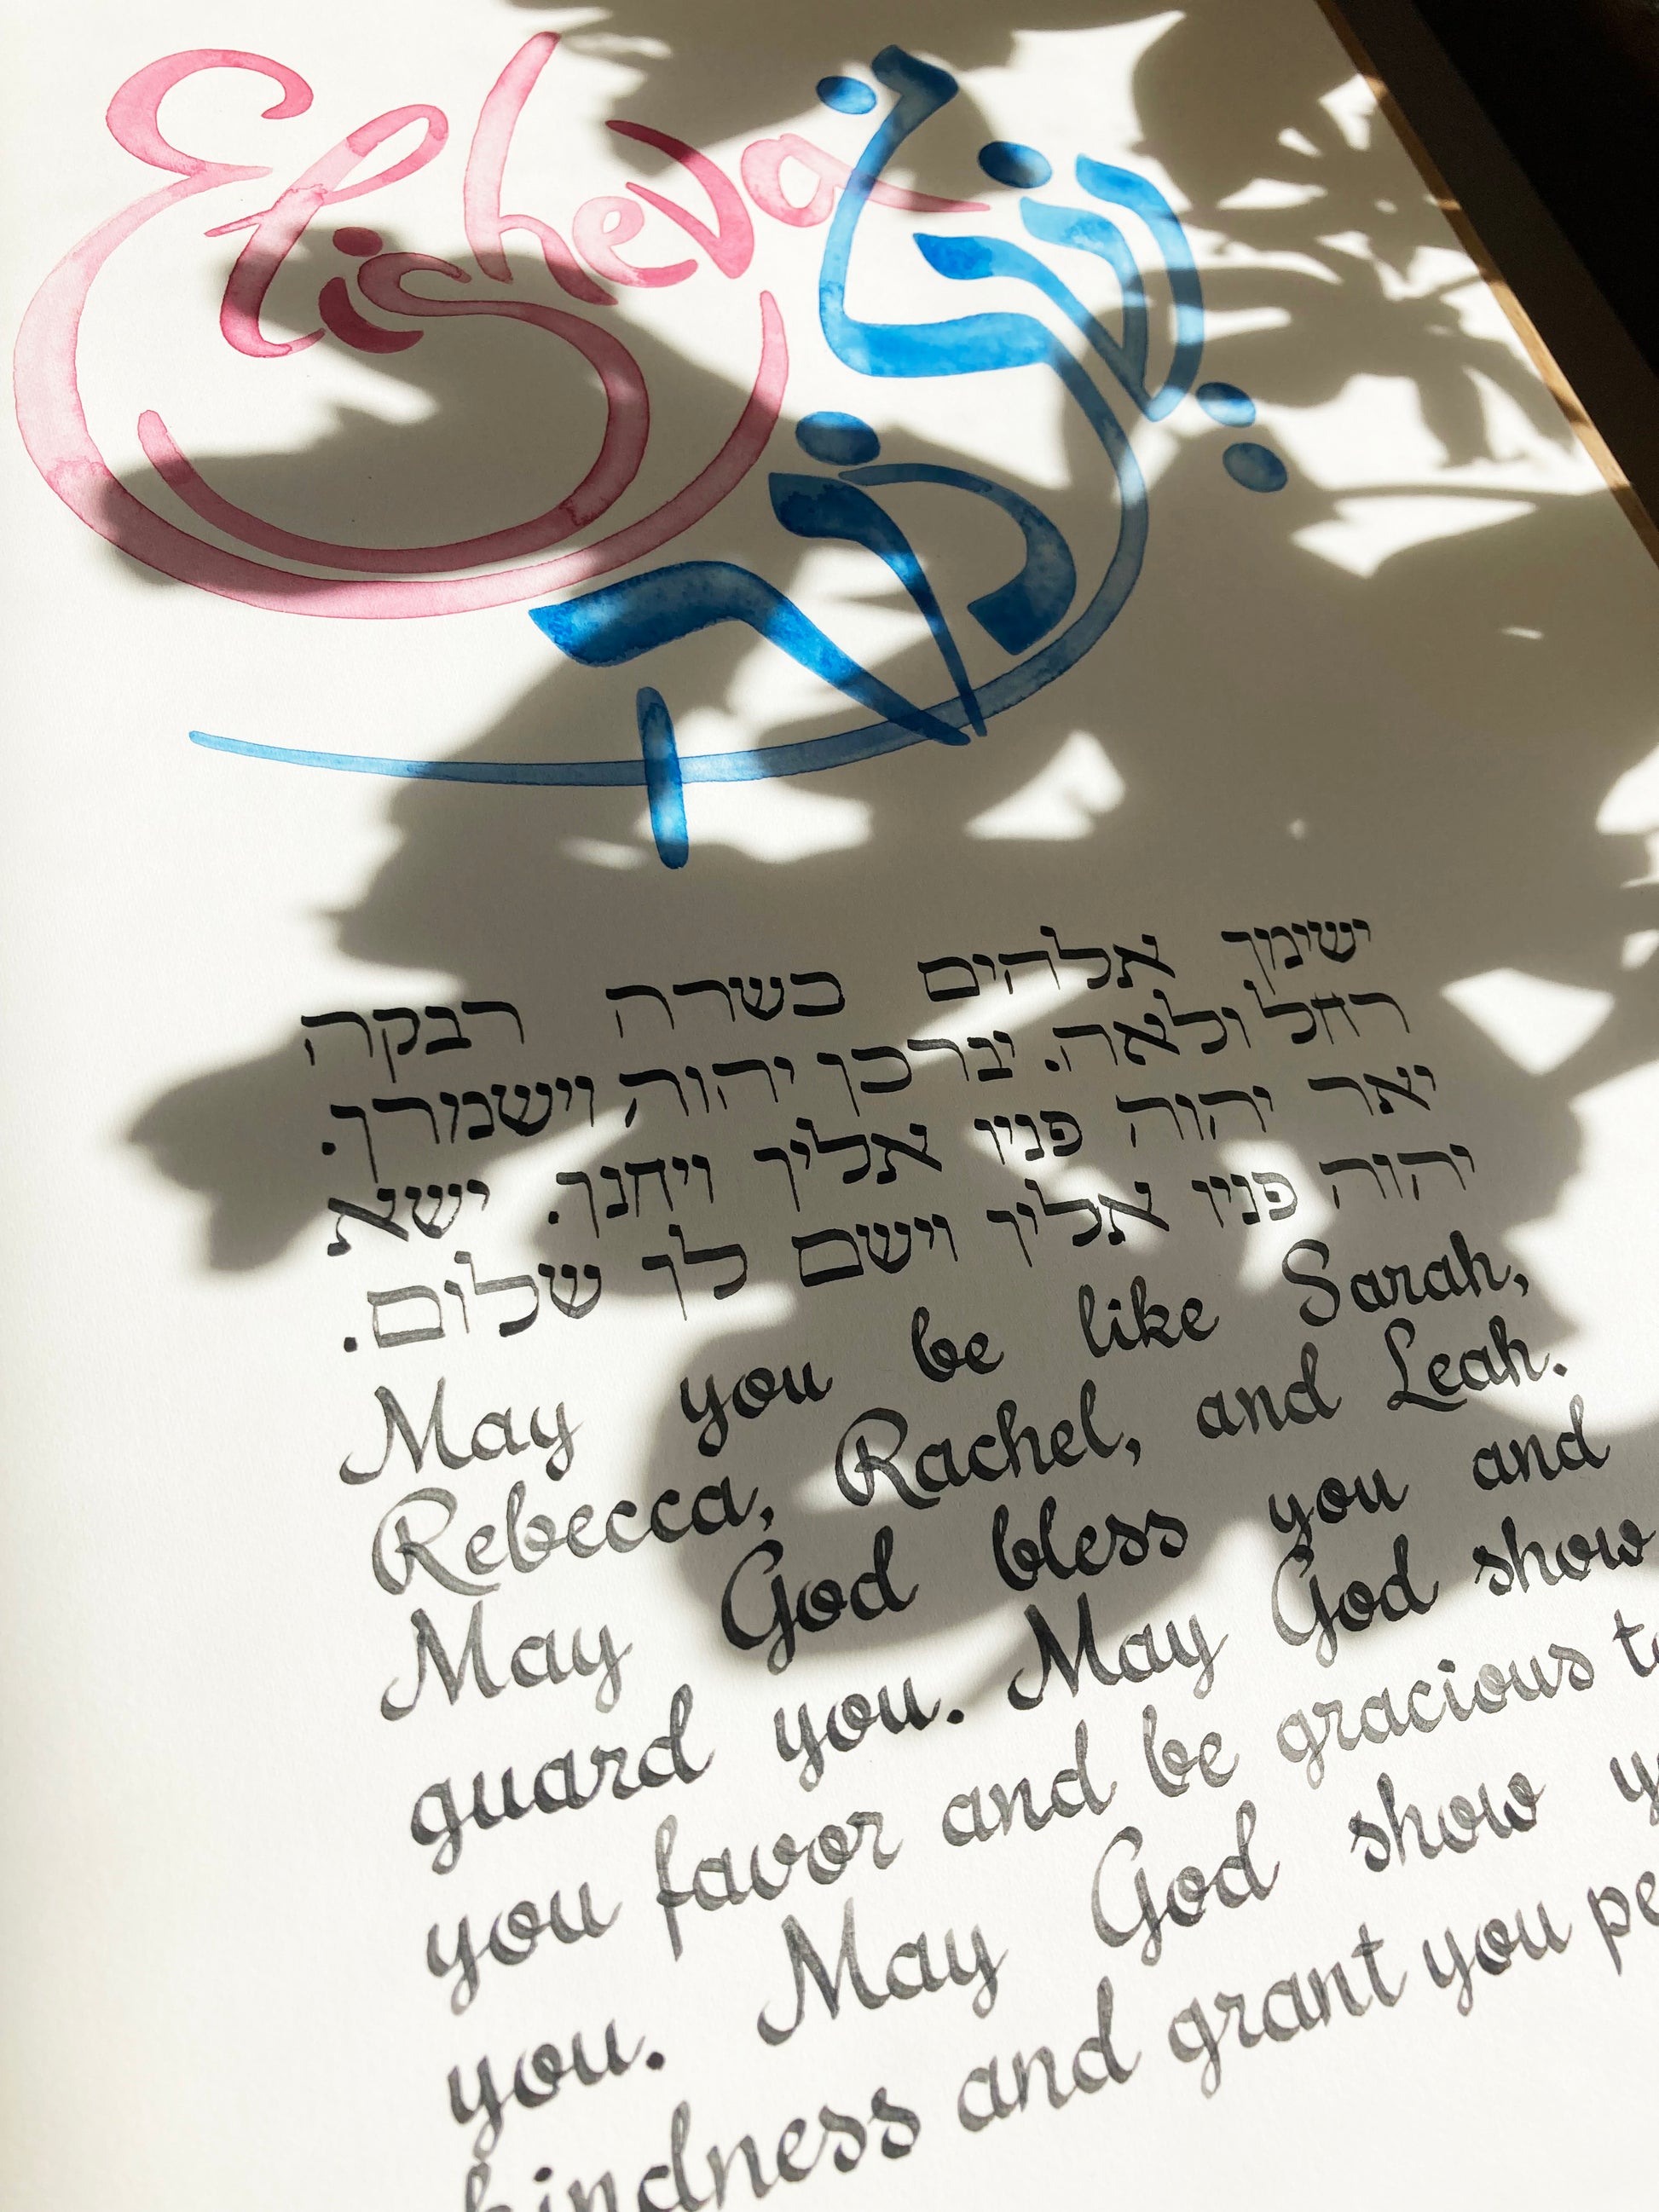 Elisheva
ישימך אלהים כשרה רבקה
רחל ולאה. יברכך יהוה וישמרך.
יאר יהוה פניו אליך ויחנך. ישא
יהוה פניו אליך וישם לך שלום.
May you be like Sarah,
Rebecca, Rachel, and Leah.
May God bless you and
guard you. May God show
you favor and be gracious
you. May God show
kindness and grant you